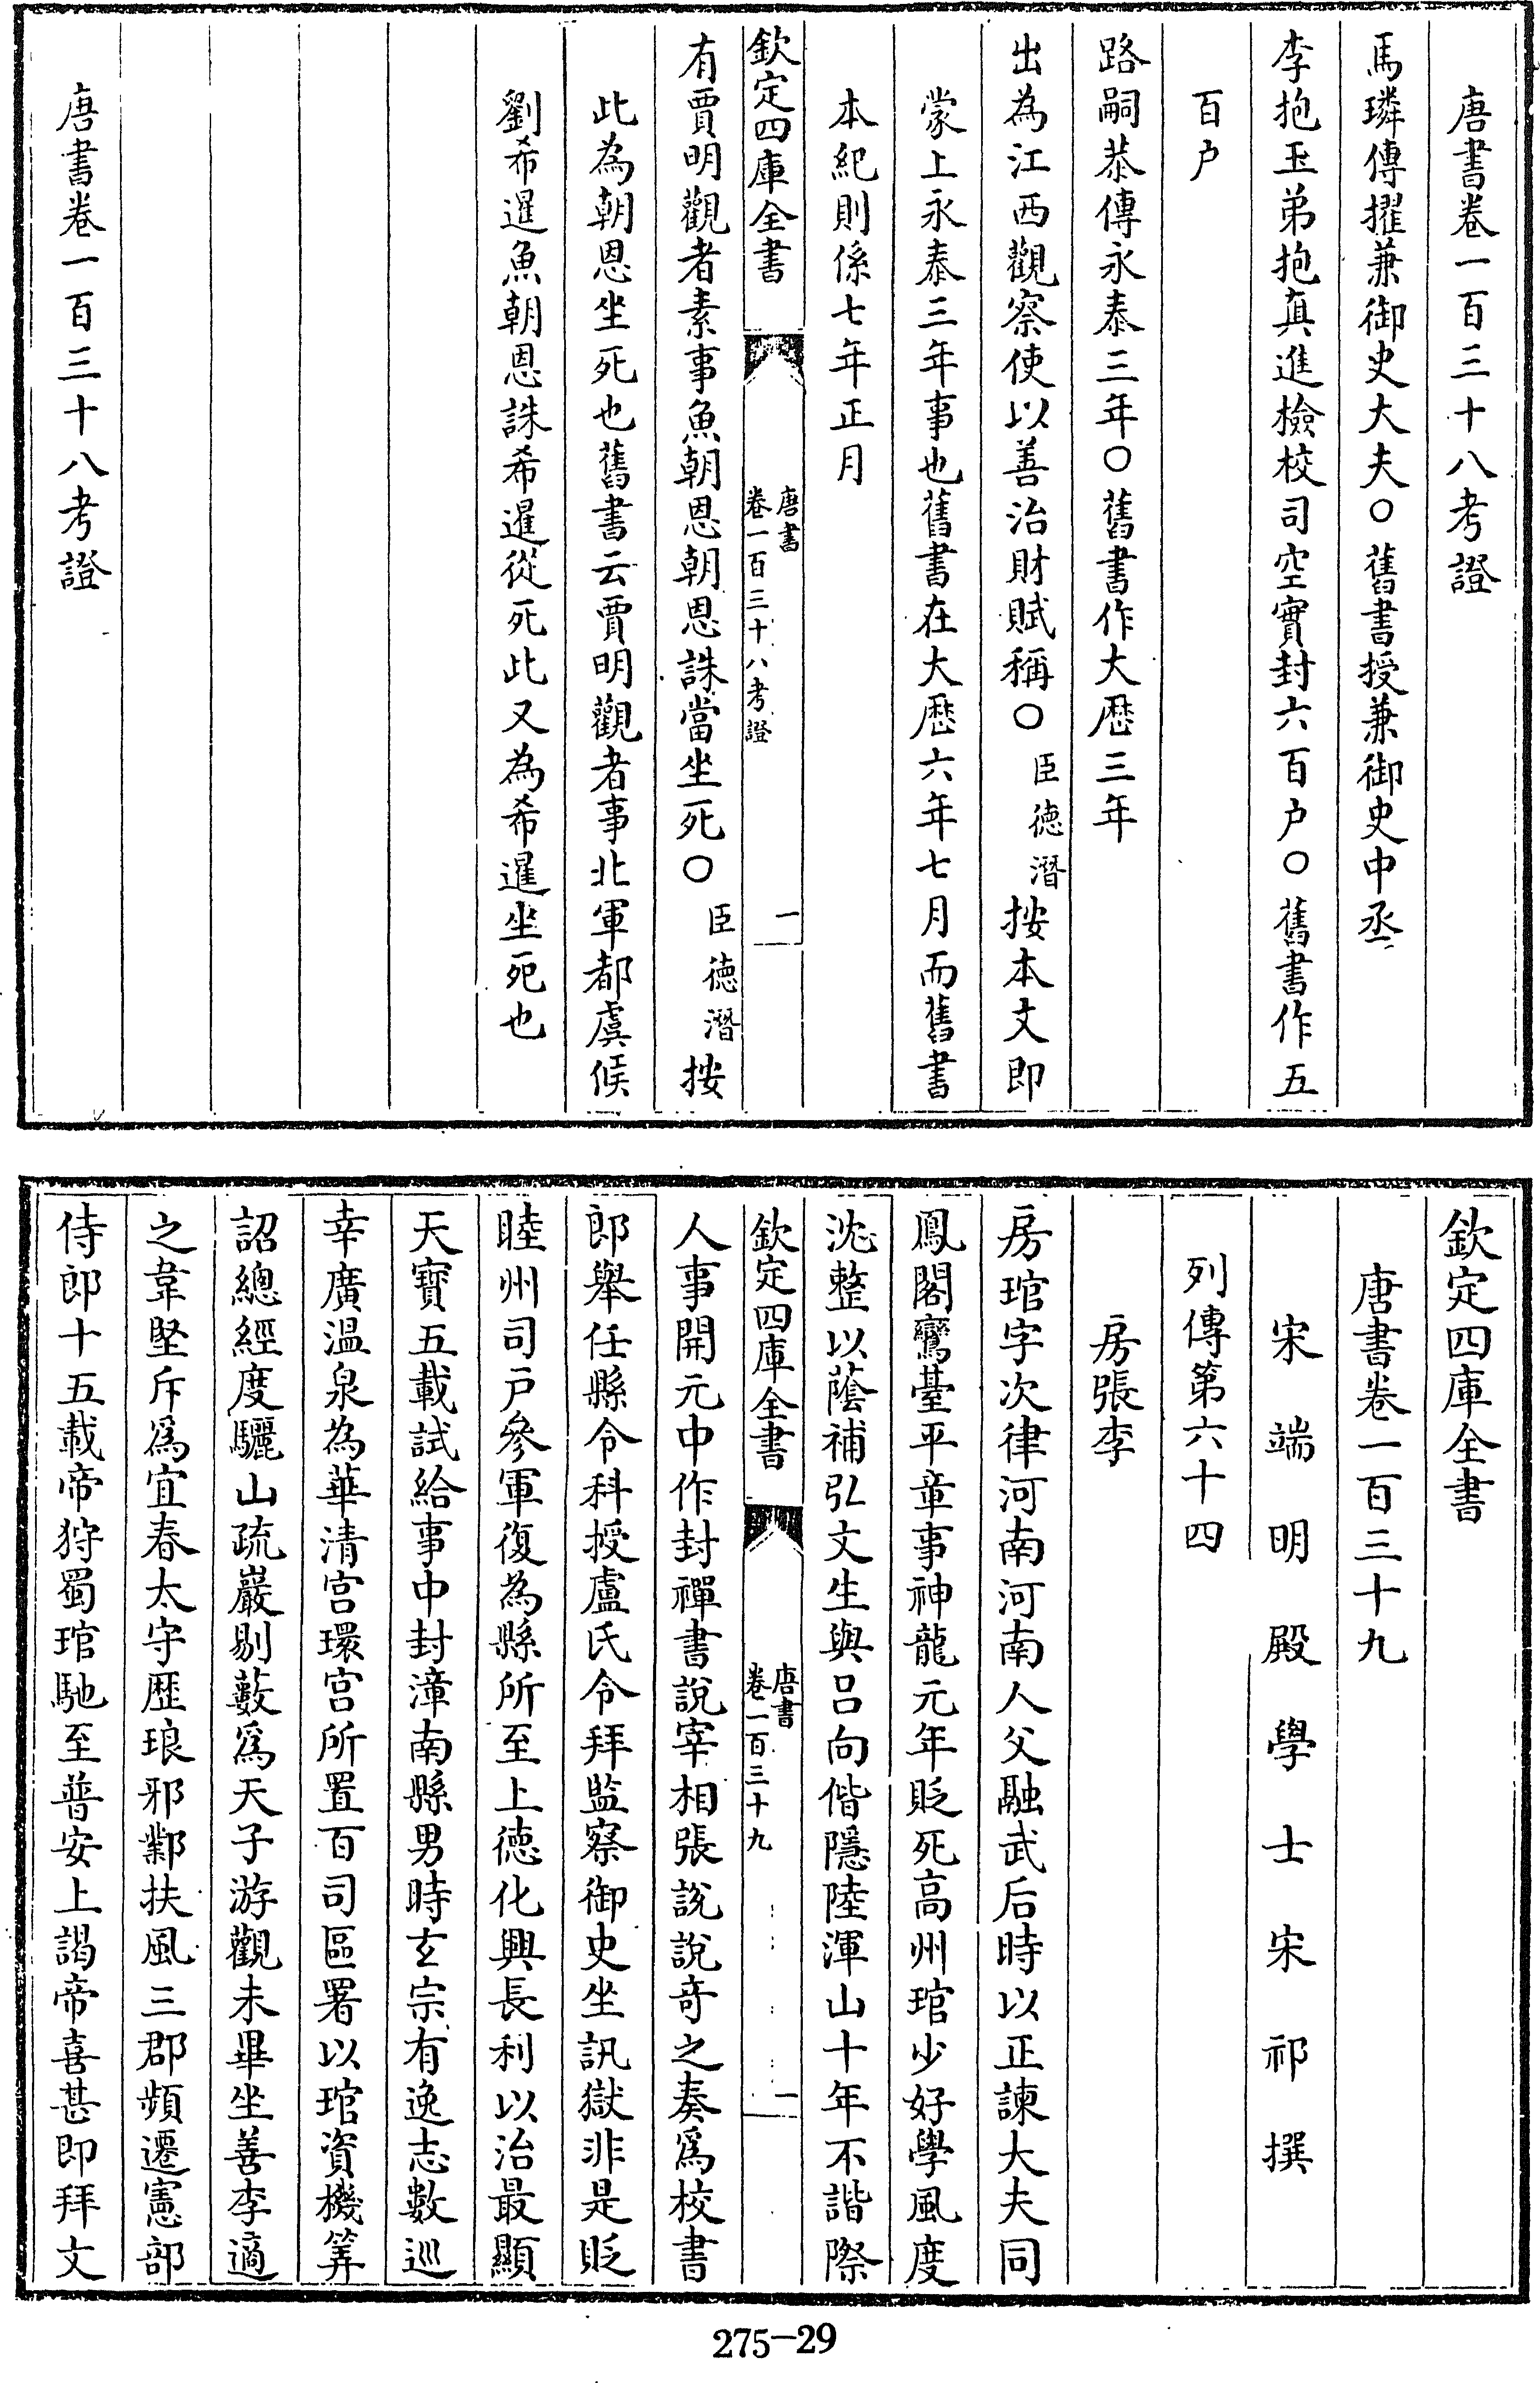 唐書卷一百三十八考證
馬璘傳擢兼御史大夫○舊書授兼御史中丞
李抱玉弟抱真進檢校司空實封六百户○舊書作五
百户
路嗣恭傳永泰三年○舊書作大厯三年
出為江西觀察使以善治財賦稱○臣德潛按本文即
蒙上永泰三年事也舊書在大厯六年七月而舊書
本紀則係七年正月
欽定四庫全書
唐書
卷一百三十八考證
一
有賈明觀者素事魚朝恩朝恩誅當坐死○臣德潛按
此為朝恩坐死也舊書云賈明觀者事北軍都虞候
劉希暹魚朝恩誅希暹從死此又為希暹坐死也
唐書卷一百三十八考證
欽定四庫全書
唐書卷一百三十九
宋端明殿學士宋祁撰
列傳第六十四
房張李
房琯字次律河南河南人父融武后時以正諫大夫同
鳳閣鸞臺平章事神龍元年貶死高州琯少好學風度
沈整以蔭補弘文生與呂向偕隱陸渾山十年不諧際
欽定四庫全書
唐書
卷一百三十九
一
人事開元中作封禪書說宰相張說說奇之奏爲校書
郎舉任縣令科授盧氏令拜監察御史坐訊獄非是貶
睦州司戸參軍復為縣所至上德化興長利以治最顯
天寶五載試給事中封漳南縣男時玄宗有逸志數巡
幸廣溫泉為華清宮環宮所置百司區署以琯資機筭
詔總經度驪山疏巖剔藪爲天子游觀未畢坐善李適
之韋堅斥爲宜春太守歴琅邪鄴扶風三郡頻遷憲部
侍郎十五載帝狩蜀琯馳至普安上謁帝喜甚即拜文
275-29